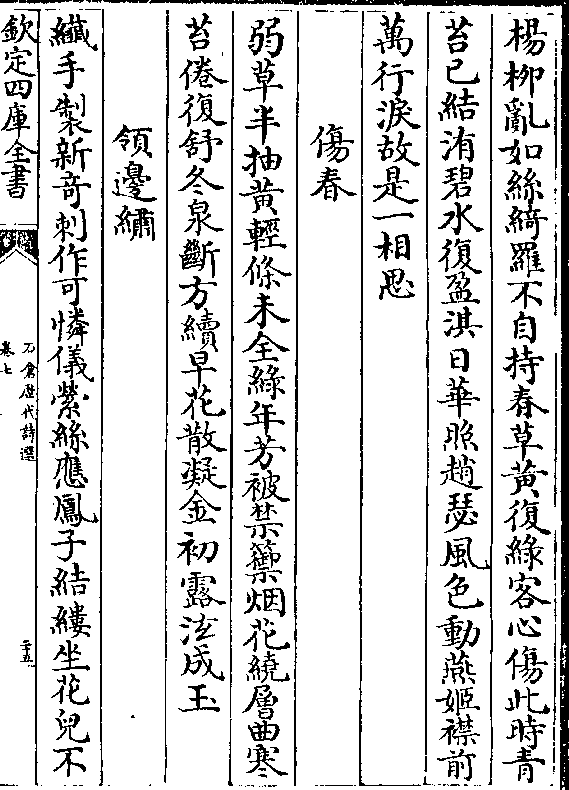 楊柳亂如絲綺羅不自持春草黃復綠客心傷此時青
苔已結洧碧水復盈淇日華照趙瑟風色動燕姬襟前
萬行淚故是一相思
傷春
弱草半抽黃輕條未全綠年芳被禁籞烟花繞層曲寒
苔倦復舒冬泉斷方續早花散凝金初露泫成玉
領邊繡
纎手製新竒刺作可憐儀縈絲應鳳子結縷坐花兒不
欽定四庫全書
石倉歷代詩選
卷七
二十五